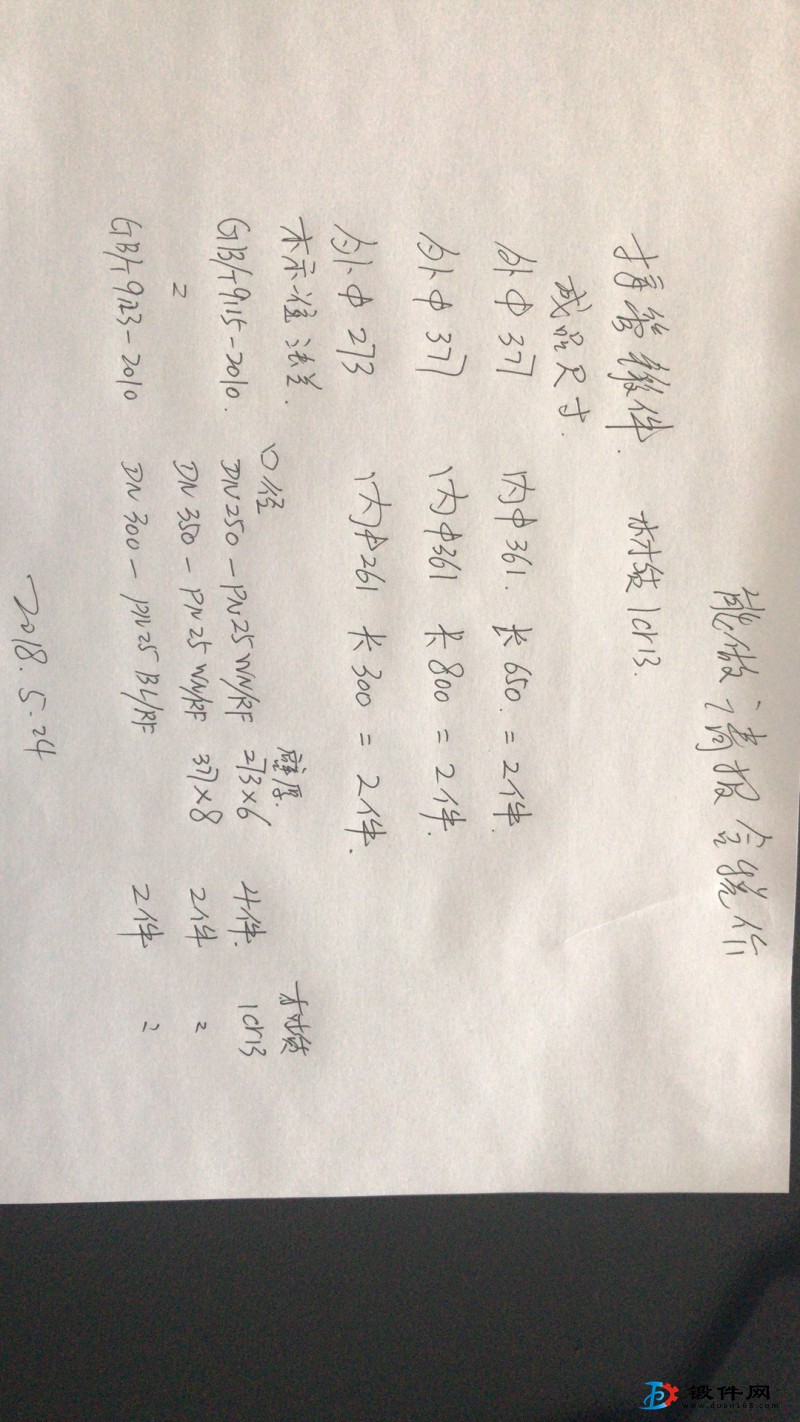 能做请报含税价
指管锻件. 材质1cr13.
成品尺寸.
外φ377 内φ361. 长650. = 2件.
外φ377 内φ361 长800 = 2件.
外φ273 内φ261 长300 = 2件.
标准法兰. 口径 壁厚. 材质
GB/T9115-2010. DN250-PN25 WN/RF 273×6 4件. 1cr13
〃 DN350-PN25 WN/RF 377×8 2件 〃
GB/T9123-2010 DN300-PN25 BL/RF 2件 〃
2018.5.24
锻件网
www.duan168.com